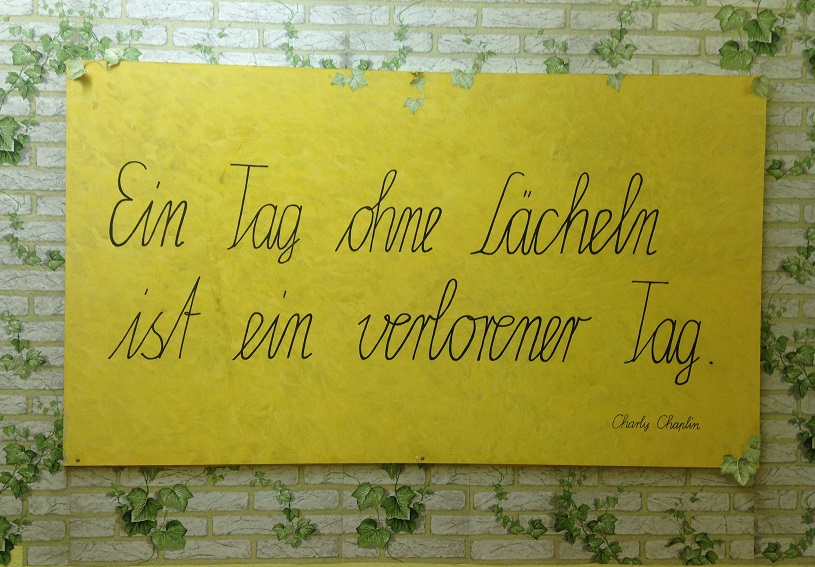 Ein Tag ohne Lächeln
ist ein verlorener Tag.
Charly Chaplin